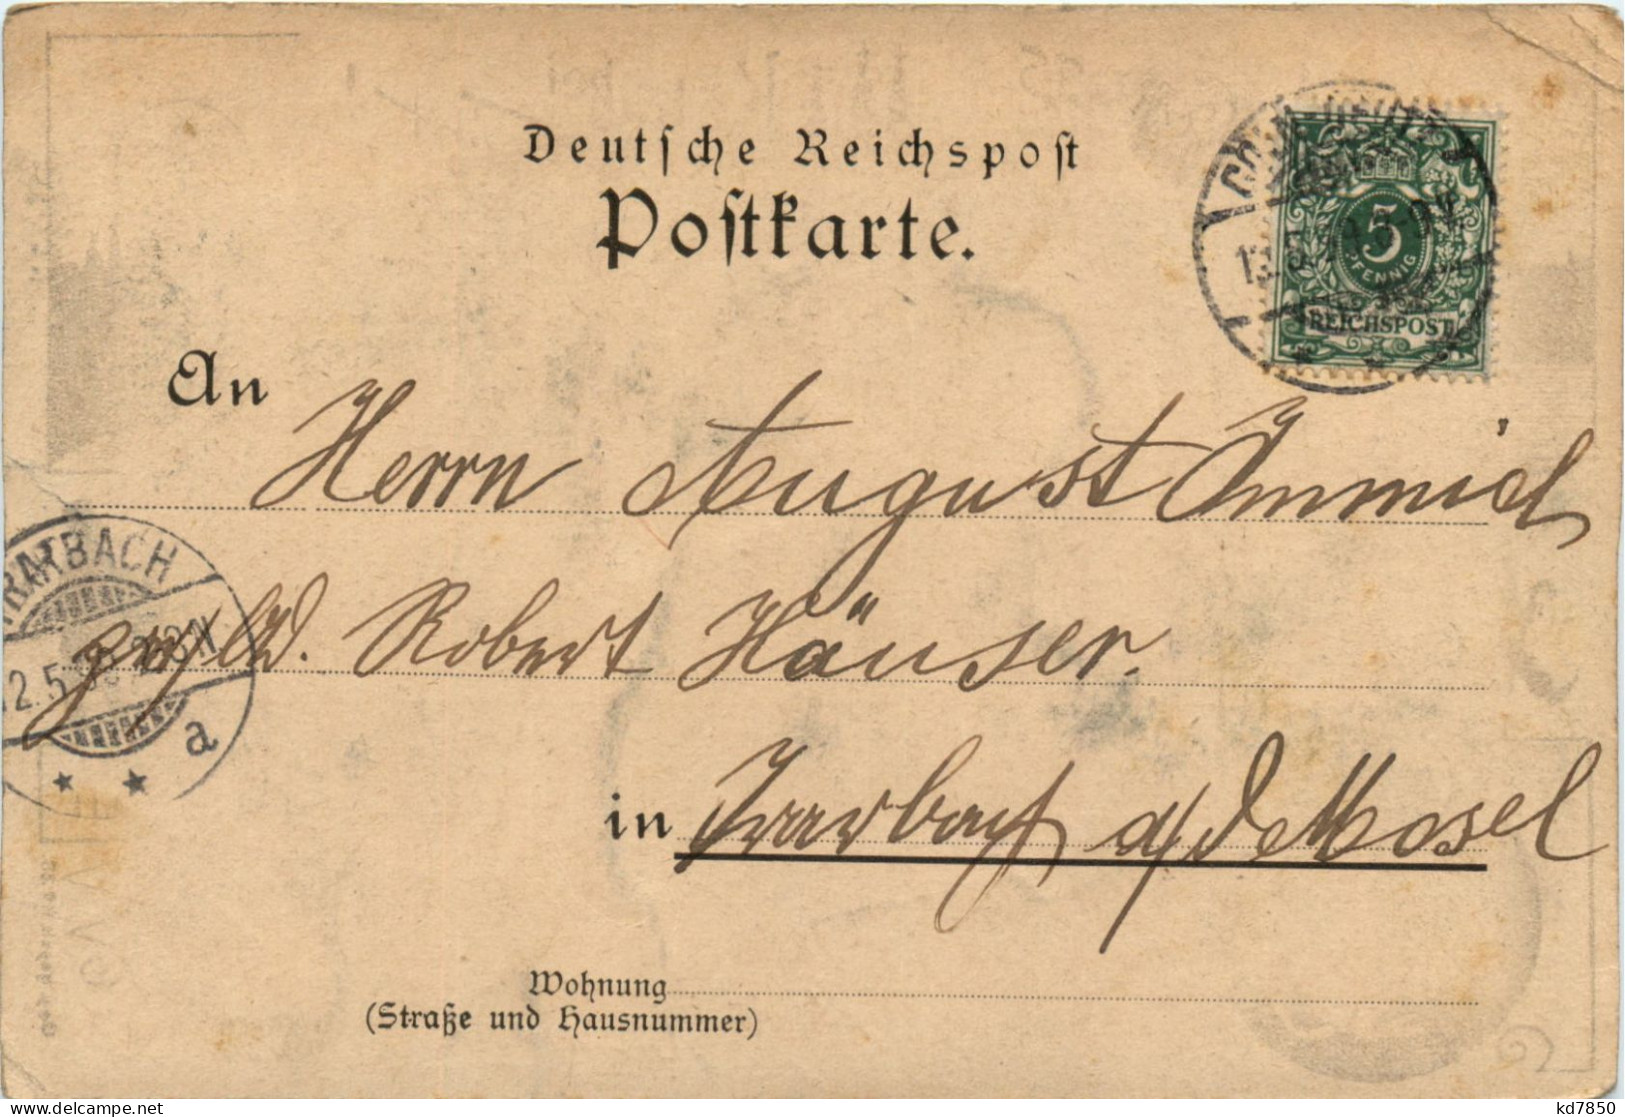 Deutsche Reichspost
Postkarte.
5
PFENNIG
REICHSPOST
An Herrn August Immich
Robert Häuser.
TRARBACH
12.5
a
in Trarbach a/d Mosel
Wohnung
(Straße und Hausnummer)
kd7850